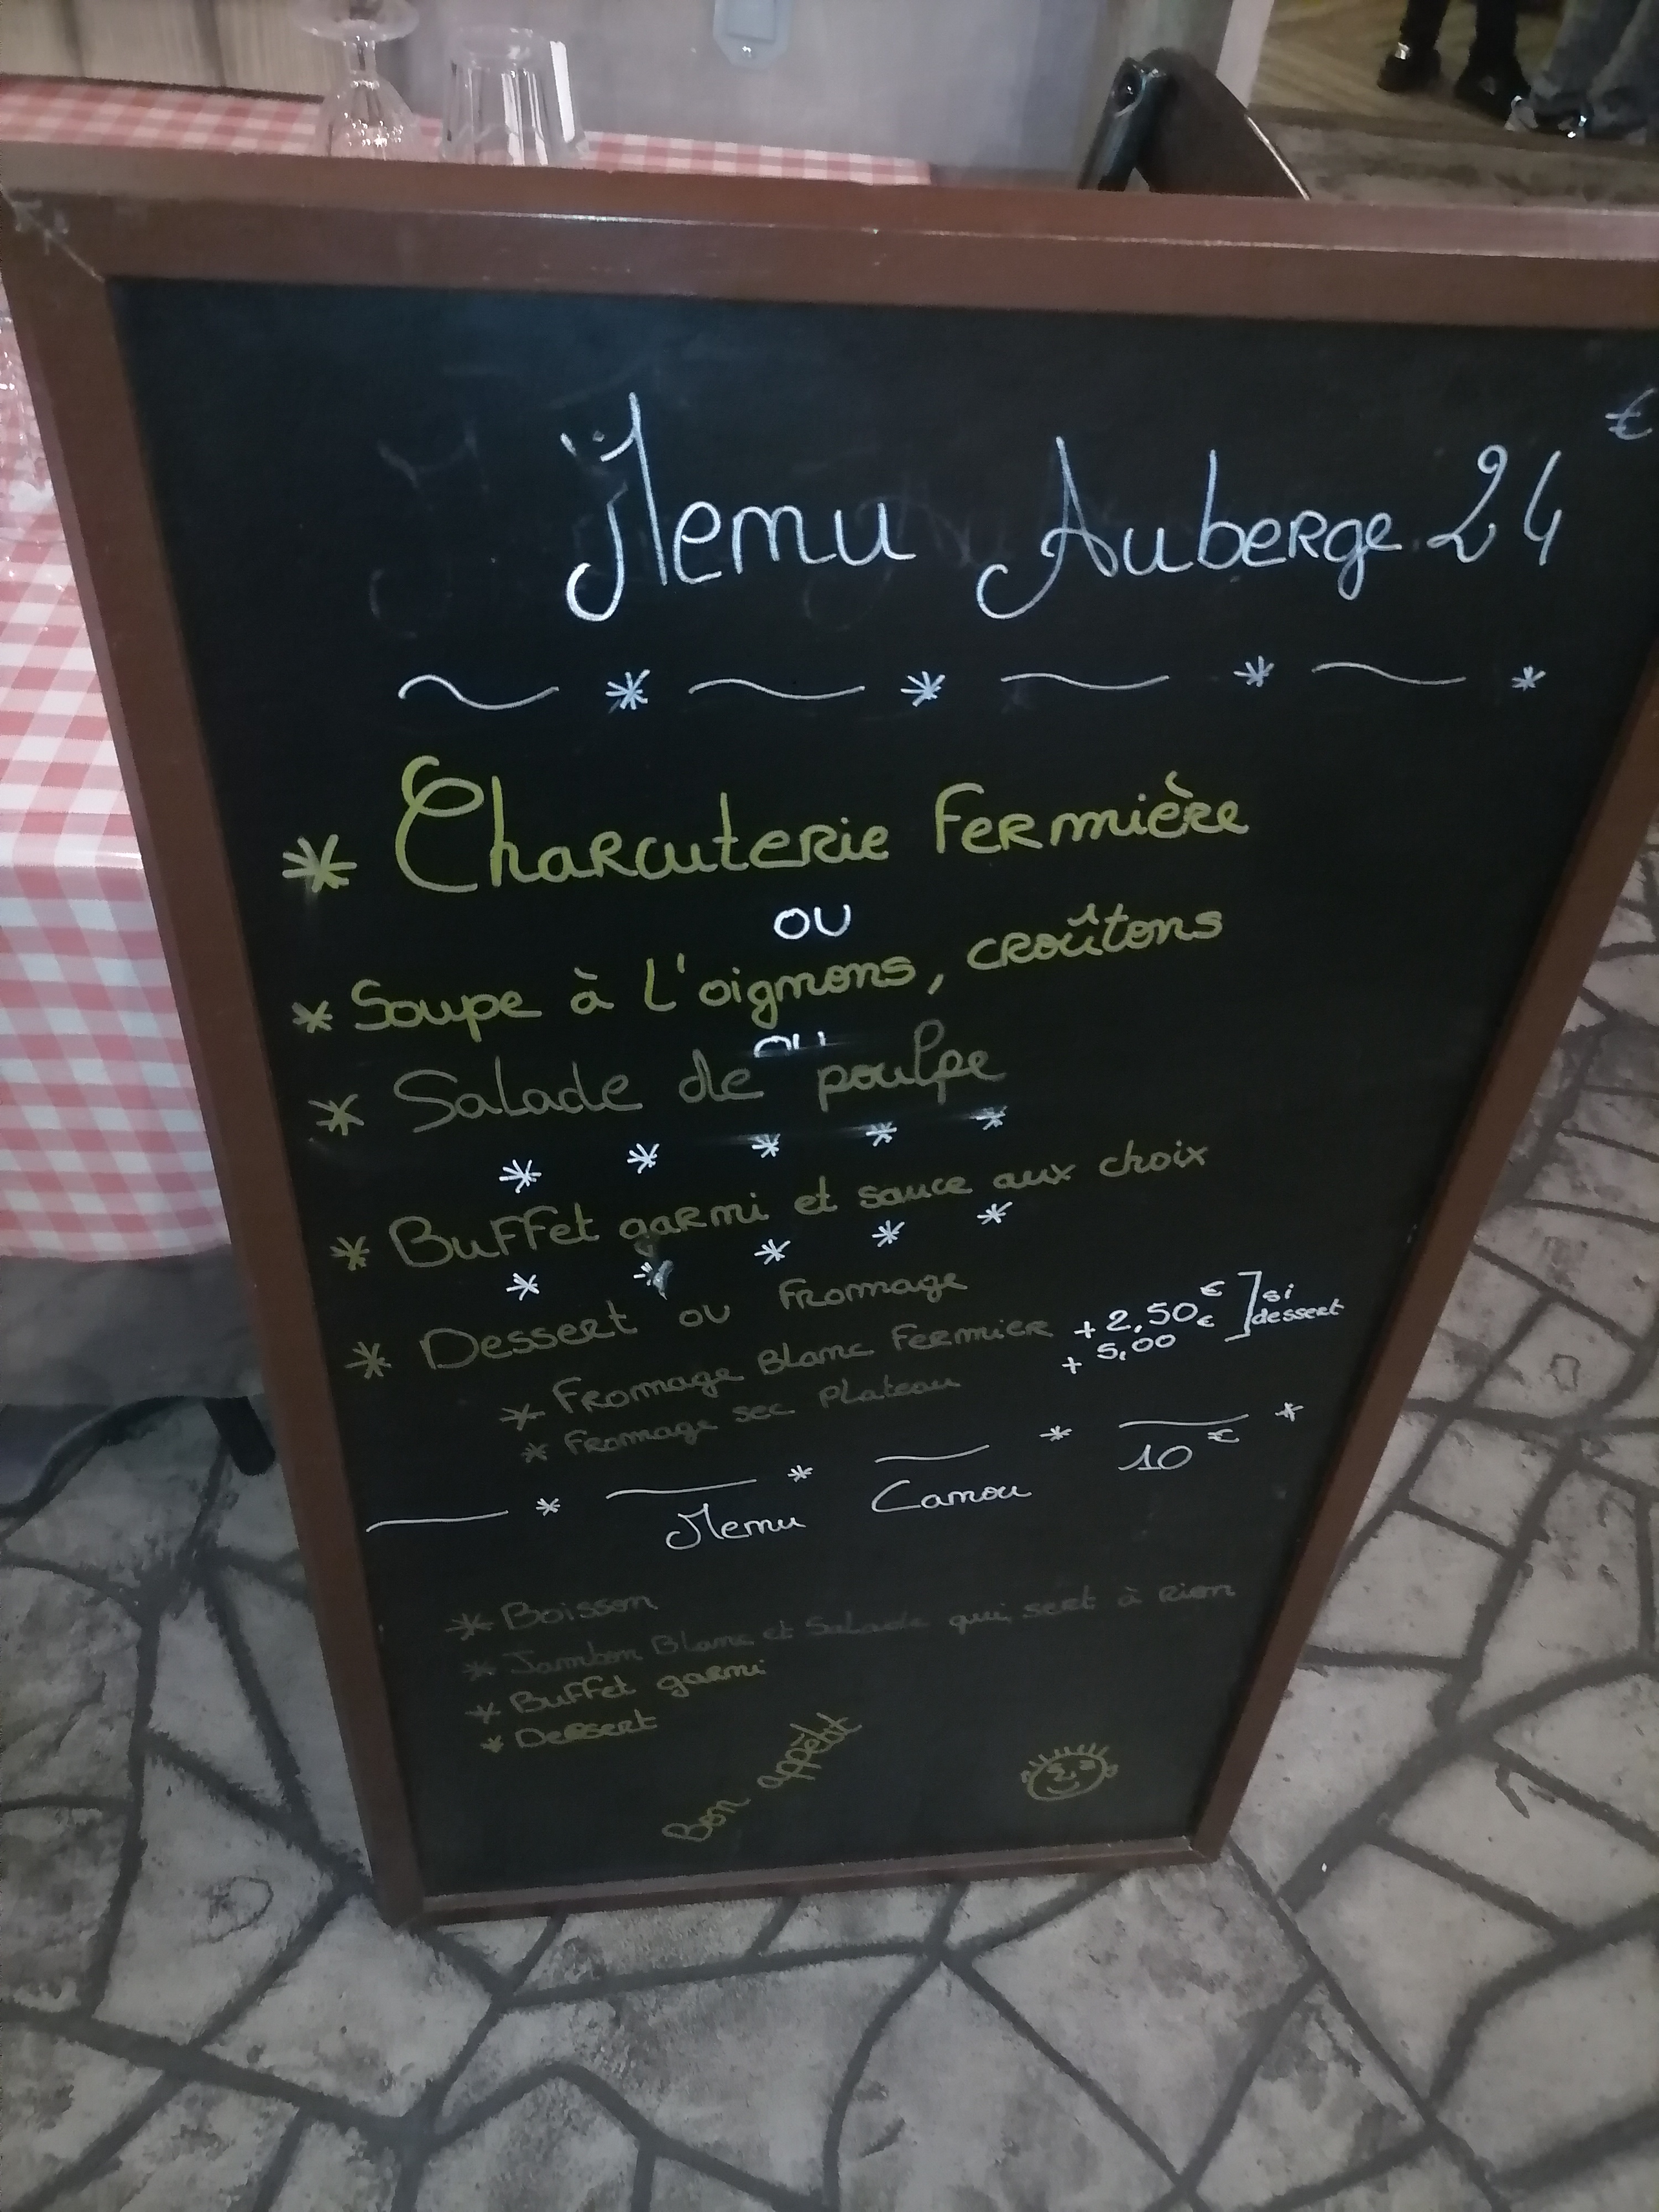 Menu Auberge 24 €
* Charcuterie Fermière
ou
* Soupe à l'oignons, croûtons
ou
* Salade de poulpe
* * * * *
* Buffet garni et sauce aux choix
* * * * *
* Dessert ou fromage
* Fromage Blanc Fermier + 2,50 € ] si dessert
* Fromage sec Plateau + 5,00 €
Menu Canou 10 €
* Boisson
* Jambon Blanc et Salade qui sert à rien
* Buffet garni
* Dessert
Bon appétit